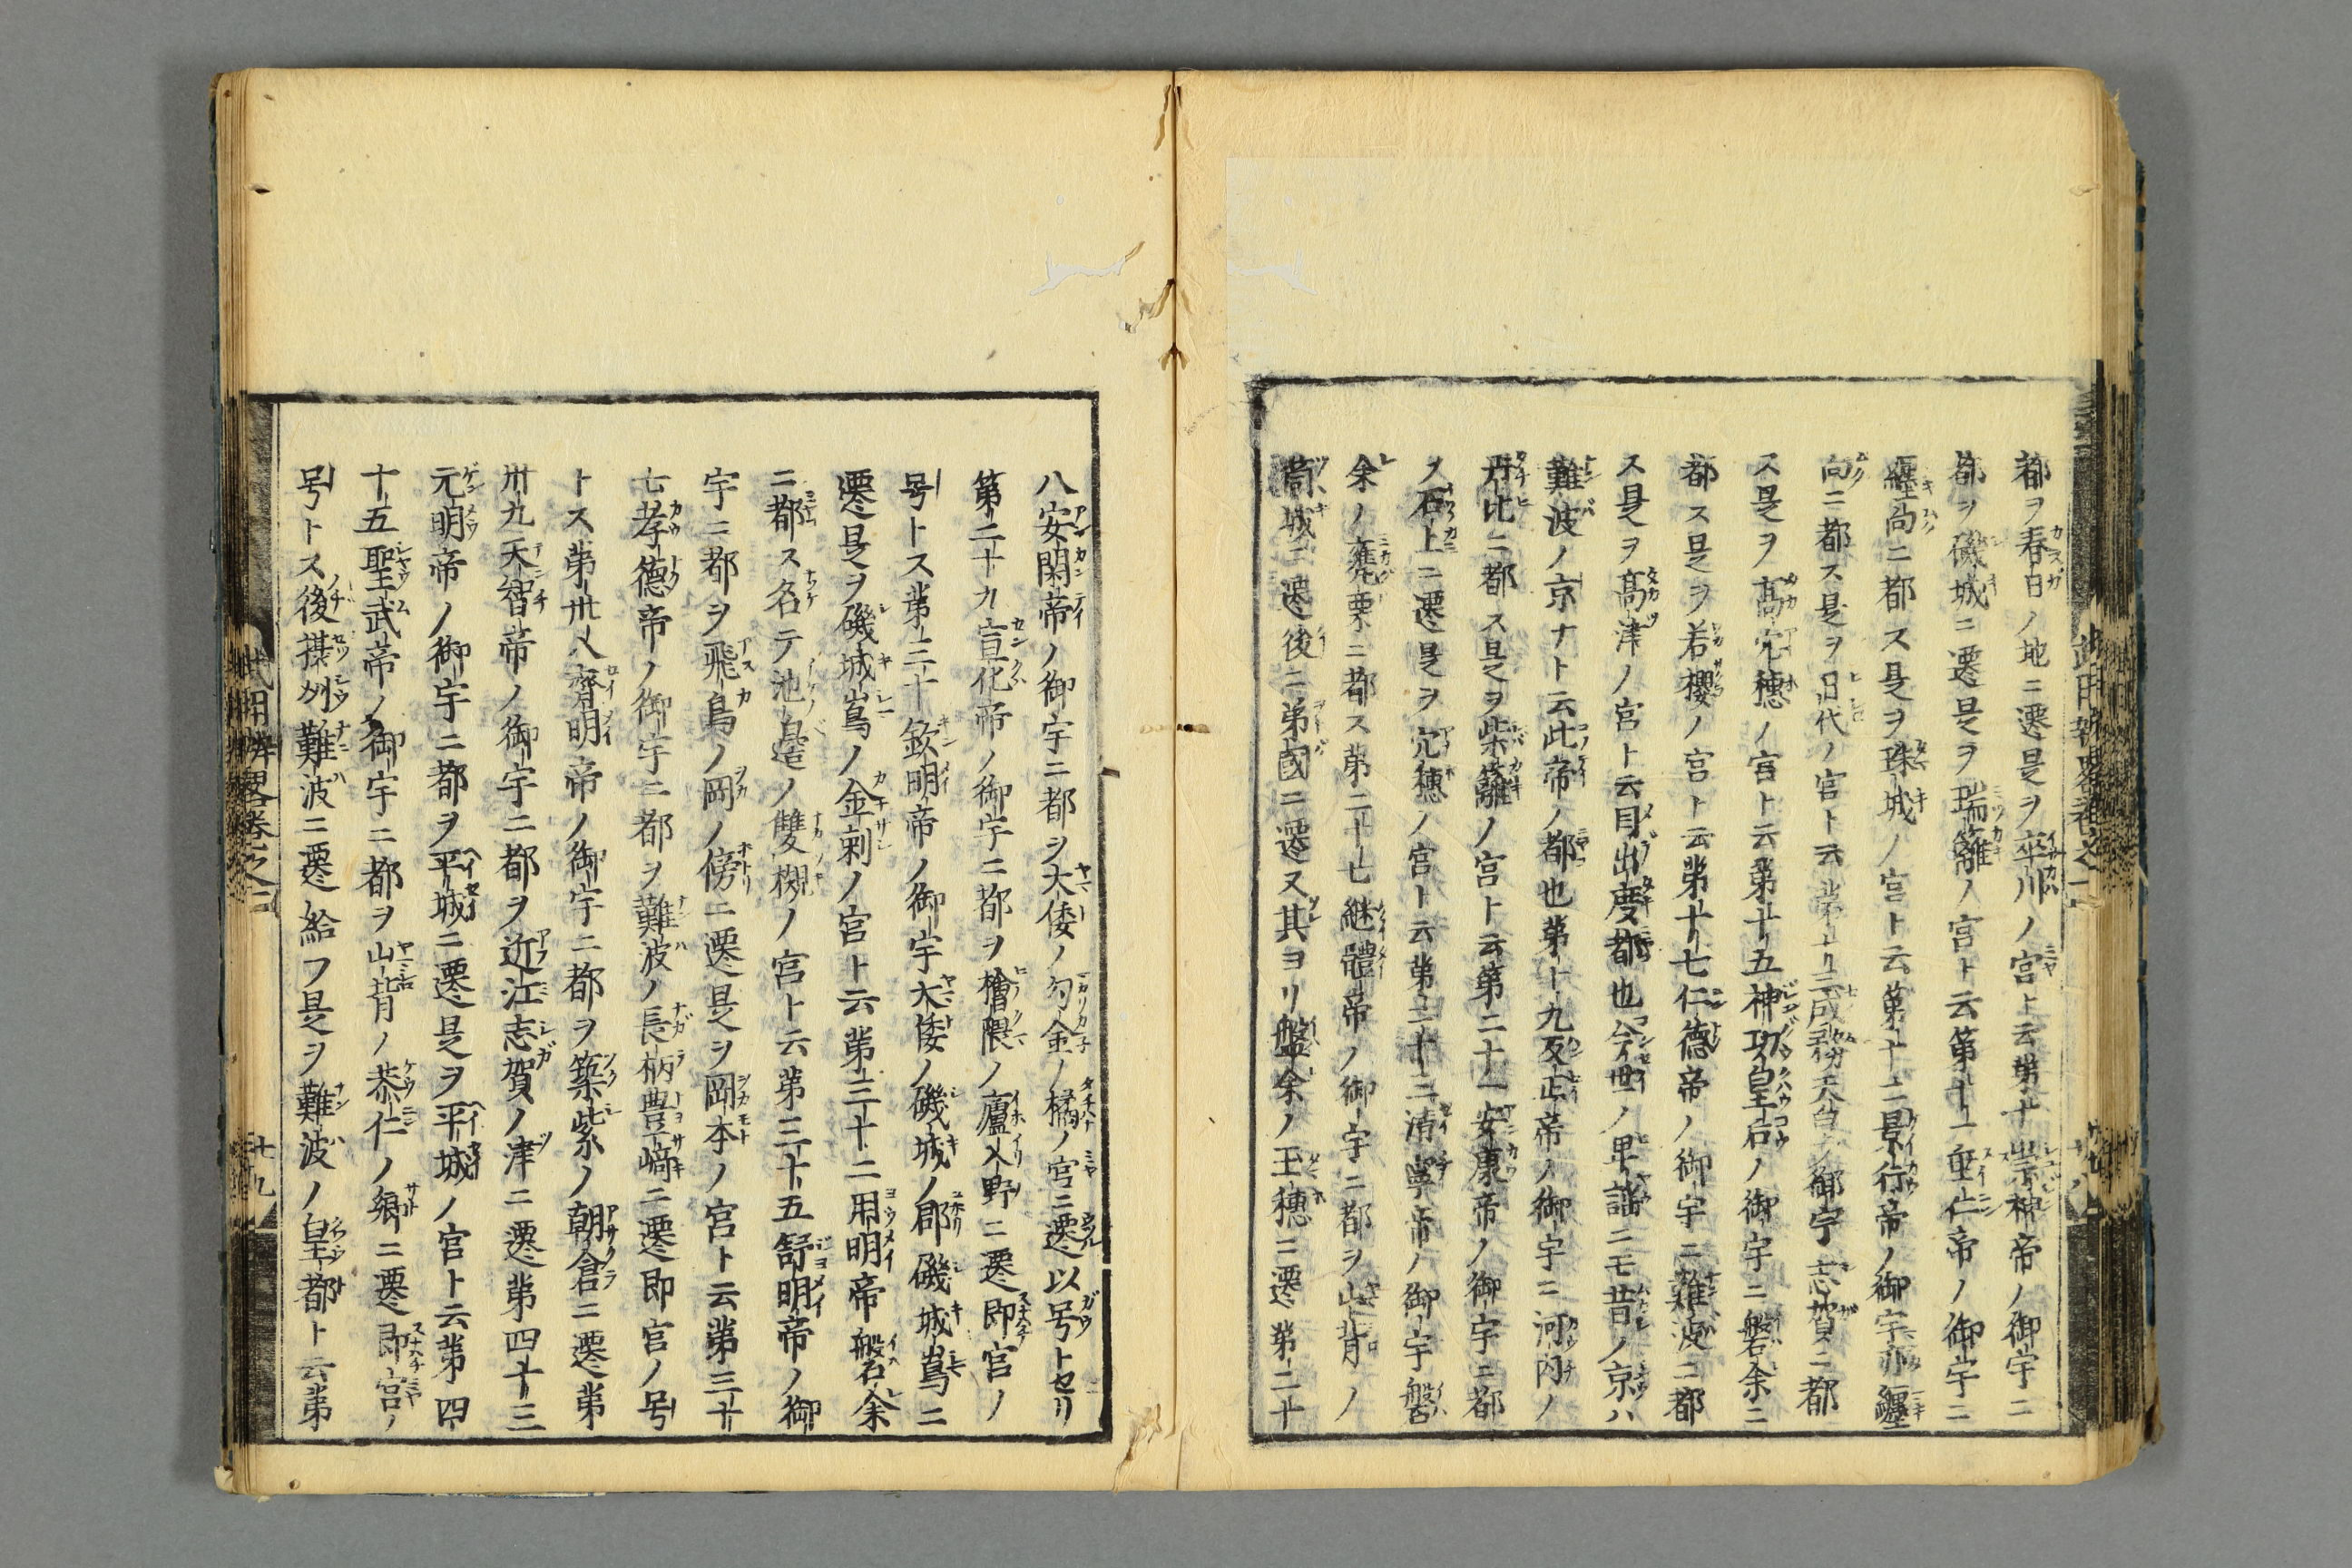 都ヲ春日ノ地ニ遷是ヲ卒川ノ宮ト云第十崇神帝ノ御宇ニ
都ヲ磯城ニ遷是ヲ瑞籬ノ宮ト云第十一垂仁帝ノ御宇ニ
纏向ニ都ス是ヲ珠城ノ宮ト云第十二景行帝ノ御宇亦纏
向ニ都ス是ヲ日代ノ宮ト云第十三成務天皇ノ御宇志賀ニ都
ス是ヲ髙穴穗ノ宮ト云第十五神功皇后ノ御宇ニ磐余ニ
都ス是ヲ若櫻ノ宮ト云第十七仁德帝ノ御宇ニ難波ニ都
ス是ヲ髙津ノ宮ト云目出度都也今世ノ里謡ニモ昔ノ京ハ
難波ノ京ナト云此帝ノ都也第十九反正帝ノ御宇ニ河内ノ
丹比ニ都ス是ヲ柴籬ノ宮ト云第二十一安康帝ノ御宇ニ都
ヲ石上ニ遷是ヲ穴穗ノ宮ト云第二十三清寧帝ノ御宇磐
余ノ甕栗ニ都ス第二十七継體帝ノ御宇ニ都ヲ山背ノ
筒城ニ遷後ニ弟國ニ遷又其ヨリ盤余ノ王穗ニ遷第二十
八安閑帝ノ御宇ニ都ヲ大倭ノ勾金ノ橘ノ宮ニ遷以号トセリ
第二十九宣化帝ノ御宇ニ都ヲ檜隈ノ廬入野ニ遷即宮ノ
号トス第三十欽明帝ノ御宇大倭ノ磯城ノ郡磯城嶌ニ
遷是ヲ磯城嶌ノ金刺ノ宮ト云第三十二用明帝磐余
ニ都ス名テ池邉ノ雙槻ノ宮ト云第三十五舒明帝ノ御
宇ニ都ヲ飛鳥ノ岡ノ傍ニ遷是ヲ岡本ノ宮ト云第三十
七孝德帝ノ御宇ニ都ヲ難波ノ長柄豊﨑ニ遷即宮ノ号
トス第卅八齋明帝ノ御宇ニ都ヲ築紫ノ朝倉ニ遷第
卅九天智帝ノ御宇ニ都ヲ近江志賀ノ津ニ遷第四十三
元明帝ノ御宇ニ都ヲ平城ニ遷是ヲ平城ノ宮ト云第四
十五聖武帝ノ御宇ニ都ヲ山背ノ恭仁ノ郷ニ遷即宮ノ
号トス後攝州難波ニ遷給フ是ヲ難波ノ皇都ト云第
十九